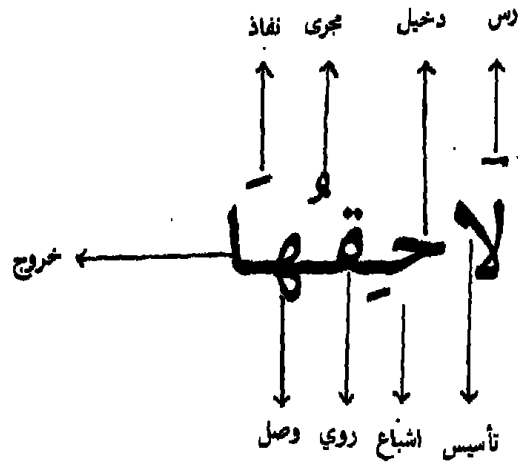 رس دخيل مجرى نفاذ
لَاحِقُهَا
خروج
تأسيس اشباع روي وصل